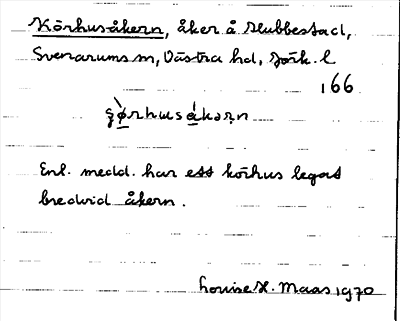 Körhusåkern, åker å Klubbestad,
Svenarums sn, Västra hd, Jönk. l
166
körhusåkərn
Enl. medd. har ett körhus legat
bredvid åkern.
Louise H. Maas 1970